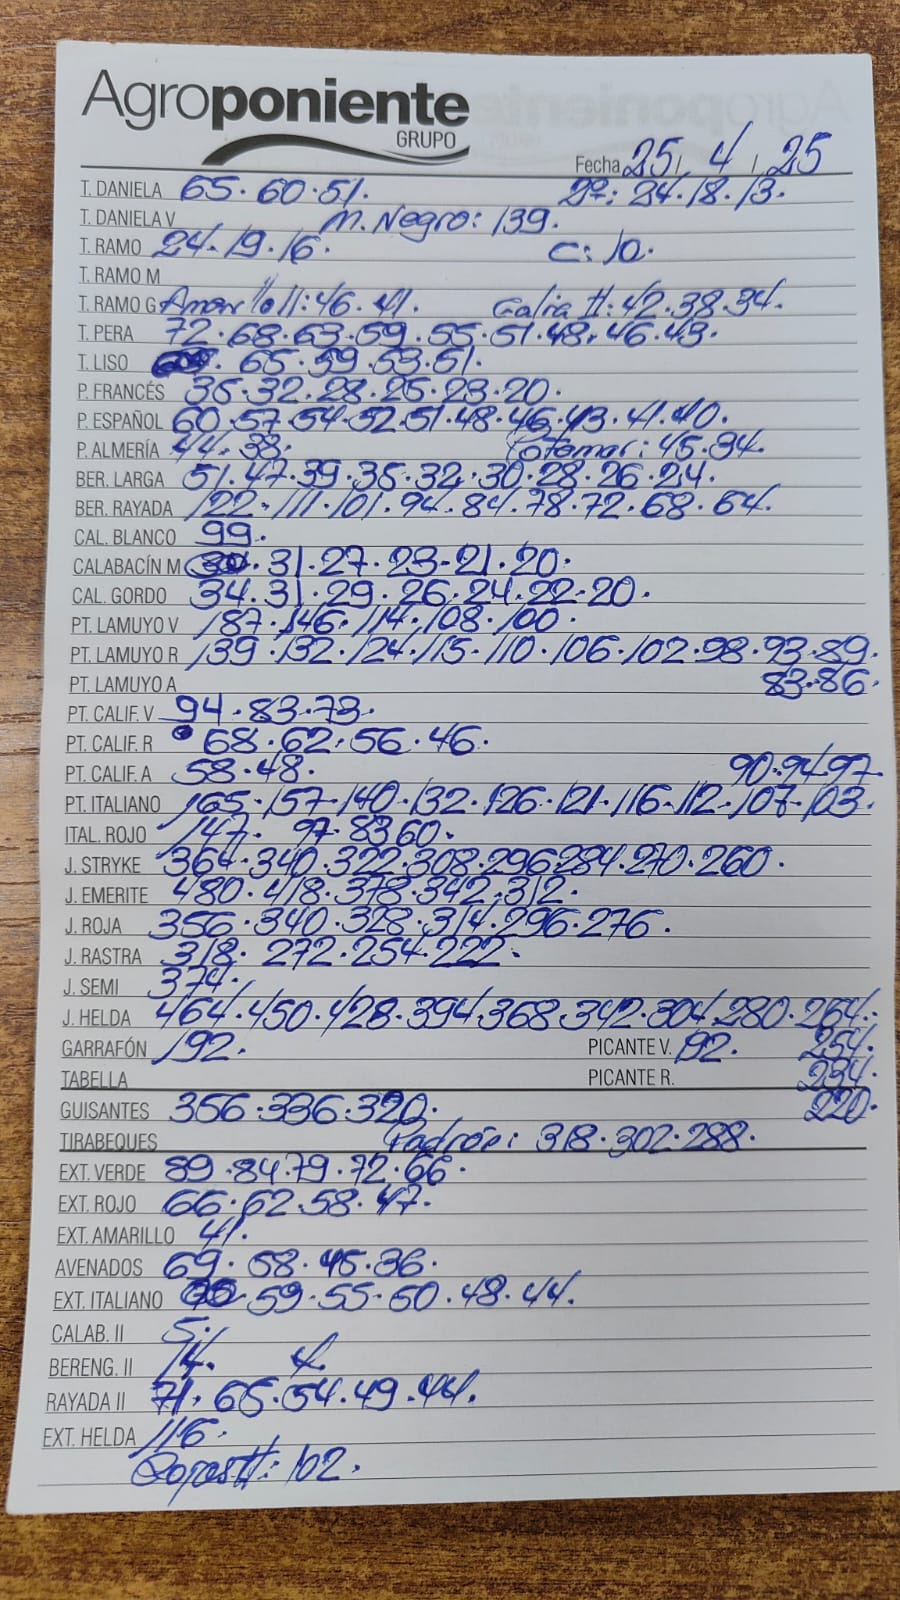 Agroponiente
GRUPO
Fecha 25 / 4 / 25
T. DANELA 65·60·51. 2º: 24·18·13.
T. DANIELA V M. Negro: 139.
T. RAMO 24·19·16. C: 10.
T. RAMO M
T. RAMO G Amarillo II: 46·41. Galia II: 42·38·34.
T. PERA 72·68·63·59·55·51·48·46·43.
T. LISO 65·59·53·51.
P. FRANCÉS 35·32·28·25·23·20.
P. ESPAÑOL 60·57·54·52·51·48·46·43·41·40.
P. ALMERÍA 44·38. 45·34.
BER. LARGA 51·47·39·35·32·30·28·26·24.
BER. RAYADA 122·111·101·94·84·78·72·68·64.
CAL. BLANCO 99.
CALABACÍN M 30·31·27·23·21·20.
CAL. GORDO 34·31·29·26·24·22·20.
PT. LAMUYO V 187·146·114·108·100.
PT. LAMUYO R 139·132·124·115·110·106·102·98·93·89.
PT. LAMUYO A 83·86.
PT. CALIF. V 94·83·73.
PT. CALIF. R 68·62·56·46.
PT. CALIF. A 58·48. 90·94·97.
PT. ITALIANO 165·157·140·132·126·121·116·112·107·103.
ITAL. ROJO 147· 97·83 60.
J. STRYKE 364·340·322·308·296·284·270·260.
J. EMERITE 480·418·378·342·312.
J. ROJA 356·340·328·314·296·276.
J. RASTRA 318·272·254·222.
J. SEMI 374.
J. HELDA 464·450·428·394·368·342·304·280·264.
GARRAFÓN 192. PICANTE V. 192. 254.
TABELLA PICANTE R. 234.
GUISANTES 356·336·320. 220.
TIRABEQUES Padrón: 318·302·288.
EXT. VERDE 89·84·79·72·66.
EXT. ROJO 66·62·58·47.
EXT. AMARILLO 41.
AVENADOS 69·58·45·36.
EXT. ITALIANO 59·55·50·48·44.
CALAB. II 5.
BERENG. II 14. 4.
RAYADA II 71·65·54·49·44.
EXT. HELDA 116.
Rojas II: 102.